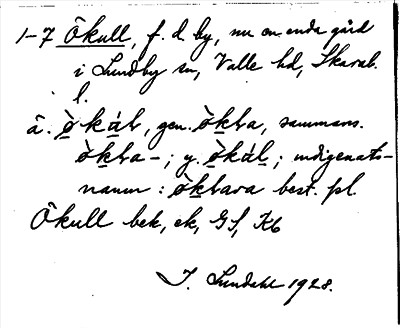 1-7 Ökull, f. d. by, nu en enda gård
i Lundby sn, Valle hd, Skarab.
l.
ä. òkál, gen. òkta, sammans.
òkta-; y. òkál; indigenats-
namn: òktara best. pl.
Ökull bek, ek, GS, Kb
I. Lundahl 1928.